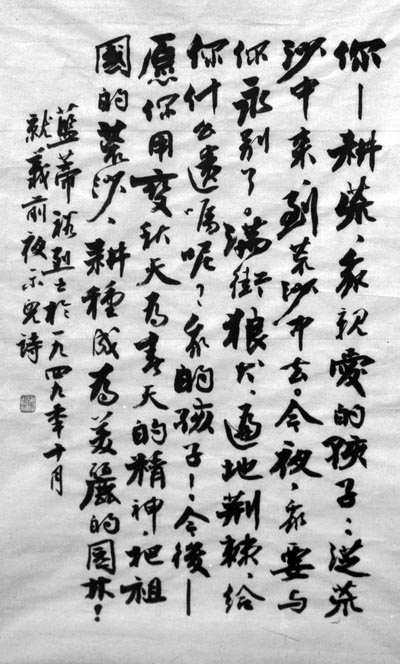 你—耕荒、我親愛的孩子;從荒
沙中来、到荒沙中去。今夜、我要与
你永别了。滿街狼犬、遍地荆棘、给
你什么遺嘱呢?我的孩子!今後—
愿你用變秋天為春天的精神、把祖
國的荒沙、耕種成為美麗的園林!
藍蒂裕烈士於一九四九年十月
就義前夜示兒詩